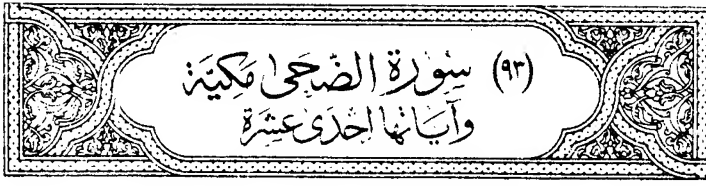 (٩٣) سورة الضحى مكية
وآياتها احدى عشرة